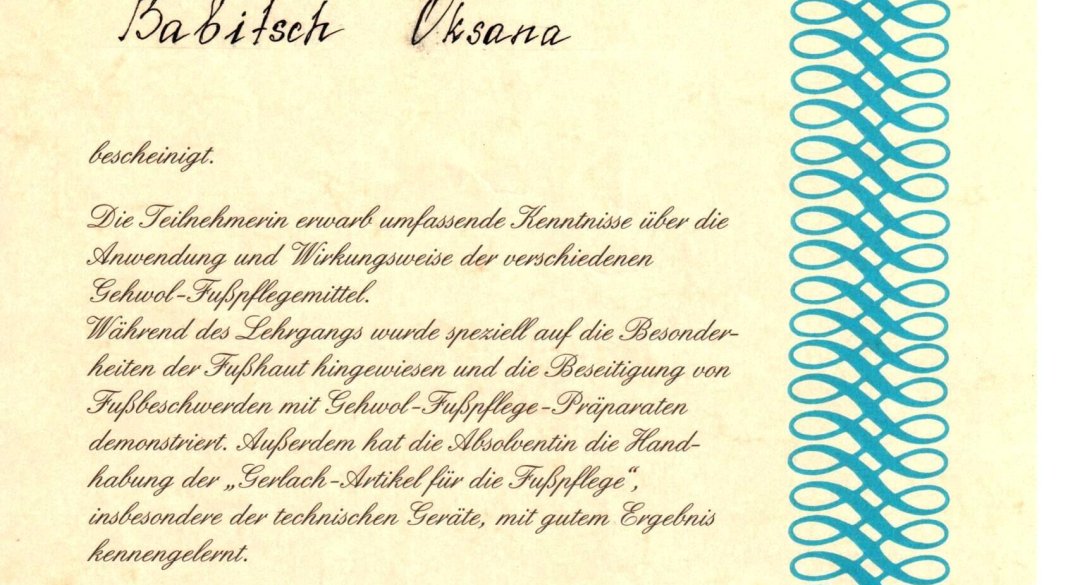 Babitsch Oksana
bescheinigt.
Die Teilnehmerin erwarb umfassende Kenntnisse über die
Anwendung und Wirkungsweise der verschiedenen
Gehwol-Fußpflegemittel.
Während des Lehrgangs wurde speziell auf die Besonder-
heiten der Fußhaut hingewiesen und die Beseitigung von
Fußbeschwerden mit Gehwol-Fußpflege-Präparaten
demonstriert. Außerdem hat die Absolventin die Hand-
habung der „Gerlach-Artikel für die Fußpflege“,
insbesondere der technischen Geräte, mit gutem Ergebnis
kennengelernt.